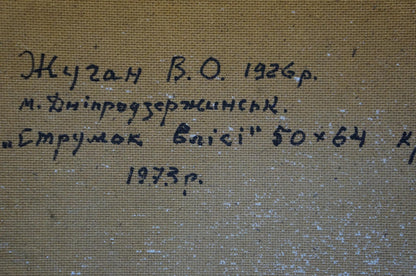 Жуган В.О. 1926р.
м. Дніпродзержинськ.
„Струмок влісі" 50×64 к
1973р.